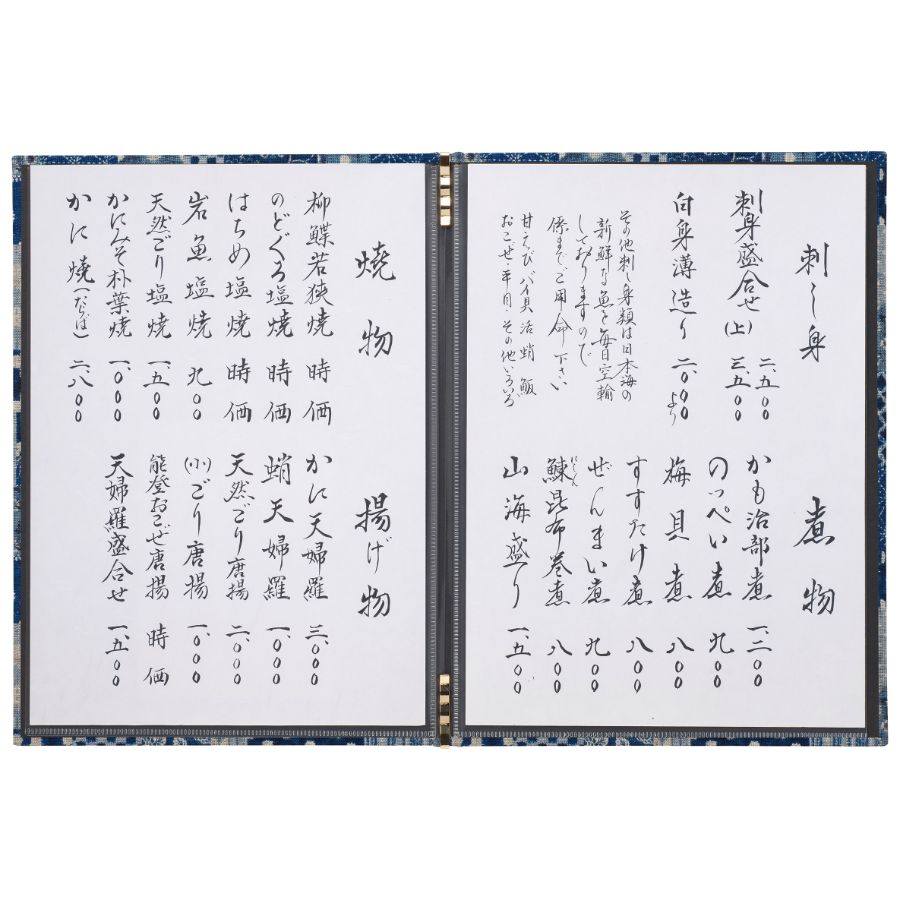 刺し身
刺身盛合せ 二、五〇〇
(上) 三、五〇〇
白身薄造り 二、〇〇〇より
その他刺し身類は日本海の
新鮮な魚を毎日空輸
しておりますので
係まで御用命下さい
甘えび バイ貝 活蛸 鰤
おこぜ・平目・その他いろいろ
煮物
かも治部煮 一、二〇〇
のっぺい煮 九〇〇
梅貝煮 八〇〇
すすたけ煮 八〇〇
ぜんまい煮 九〇〇
鰊昆布巻煮 八〇〇
にしん
山海盛り 一、五〇〇
焼物
柳鰈若狭焼 時価
のどぐろ塩焼 時価
はちめ塩焼 時価
岩魚塩焼 九〇〇
天然ごり塩焼 一、五〇〇
かにみそ朴葉焼 一、〇〇〇
かに焼(たらば) 二、八〇〇
揚げ物
かに天婦羅 三、〇〇〇
蛸天婦羅 一、〇〇〇
天然ごり唐揚 二、〇〇〇
(小)ごり唐揚 一、〇〇〇
能登おこぜ唐揚 時価
天婦羅盛合せ 一、五〇〇